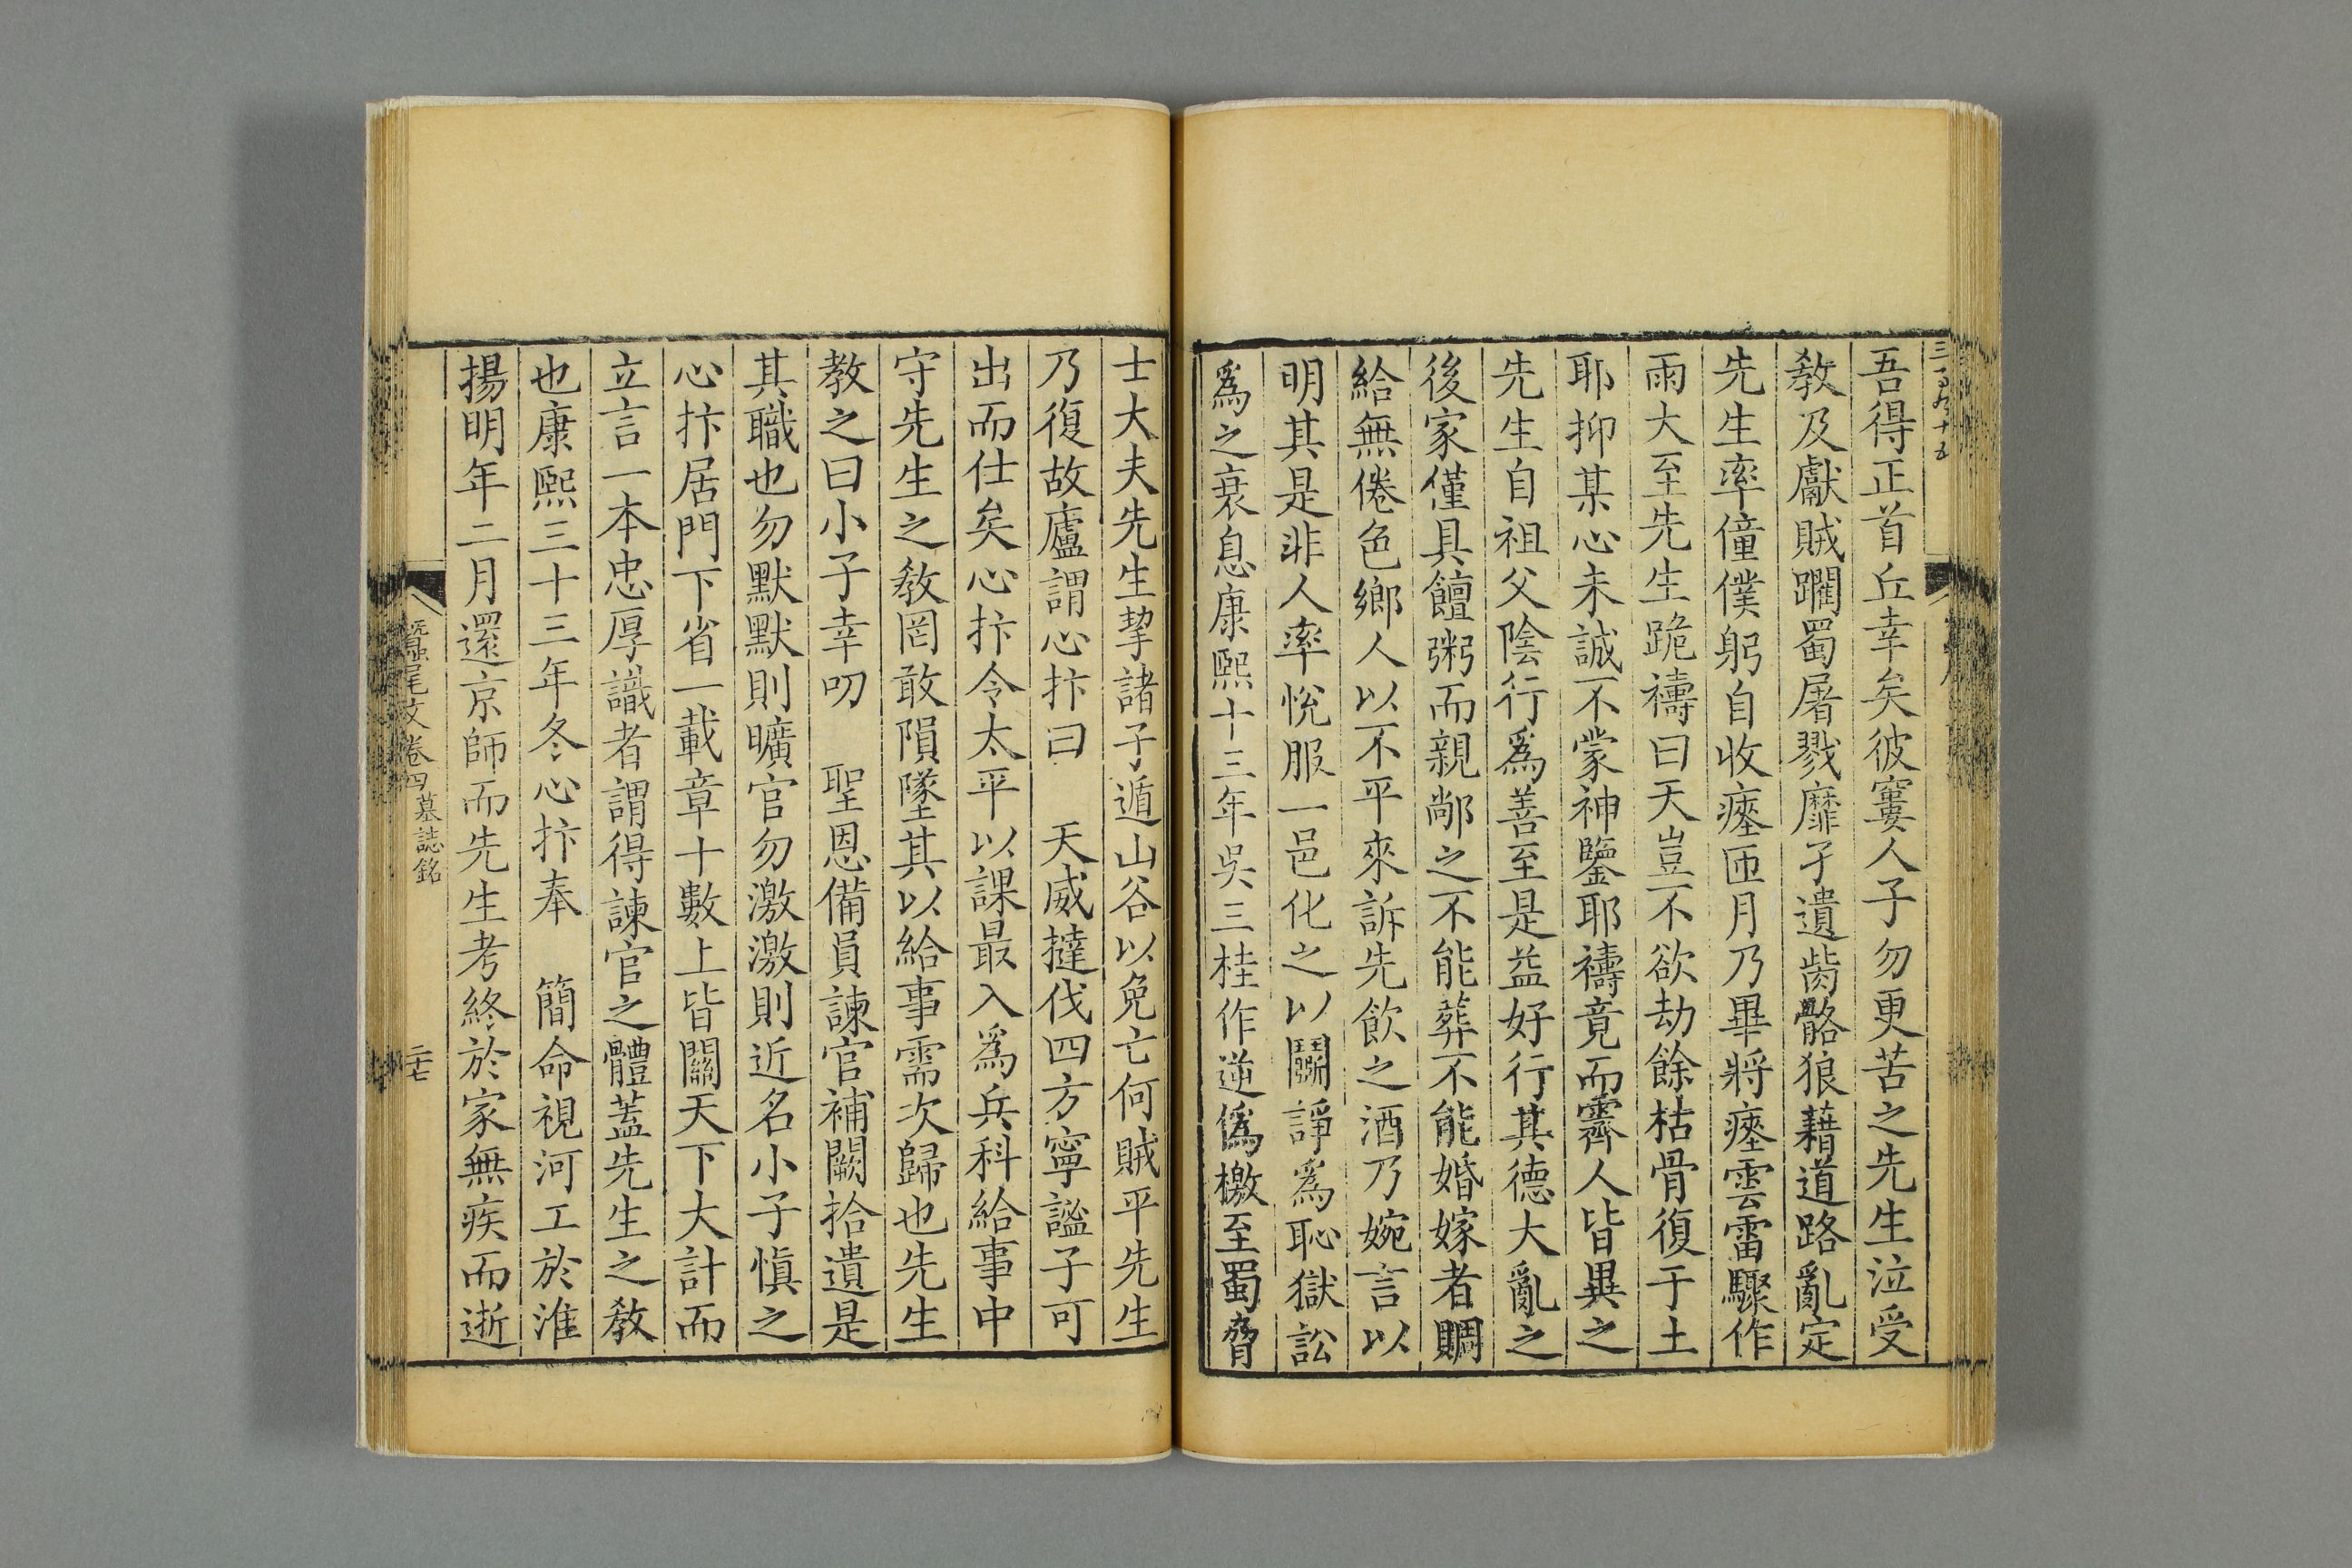 吾得正首丘幸矣彼窶人子勿更苦之先生泣受
教及獻賊躙蜀屠戮靡孑遺胔骼狼藉道路亂定
先生率僮僕躬自收瘞匝月乃畢將瘞雲雷驟作
雨大至先生跪禱曰天豈不欲劫餘枯骨復于土
耶抑某心未誠不蒙神鑒耶禱竟而霽人皆異之
先生自祖父陰行爲善至是益好行其德大亂之
後家僅具饘粥而親鄰之不能葬不能婚嫁者賙
給無倦色鄉人以不平來訴先飲之酒乃婉言以
明其是非人率悅服一邑化之以鬭諍爲恥獄訟
爲之衰息康熙十三年吳三桂作逆僞檄至蜀脅
士大夫先生挈諸子遁山谷以免亡何賊平先生
乃復故廬謂心抃曰 天威撻伐四方寧謐子可
出而仕矣心抃令太平以課最入爲兵科給事中
守先生之教罔敢隕墜其以給事需次歸也先生
教之曰小子幸叨 聖恩備員諫官補闕拾遺是
其職也勿默默則曠官勿激激則近名小子愼之
心抃居門下省一載章十數上皆關天下大計而
立言一本忠厚識者謂得諫官之體蓋先生之教
也康熙三十三年冬心抃奉 簡命視河工於淮
揚明年二月還京師而先生考終於家無疾而逝
蠶尾文卷四 墓誌銘
二十七